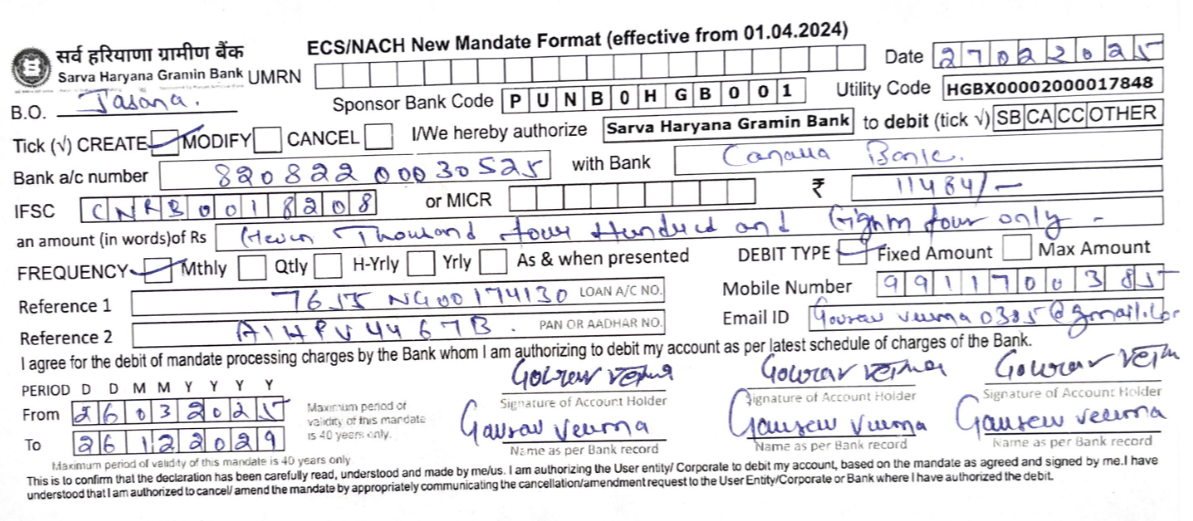 सर्व हरियाणा ग्रामीण बैंक
Sarva Haryana Gramin Bank
ECS/NACH New Mandate Format (effective from 01.04.2024)
UMRN
Date 27022025
B.O. Jasana.
Sponsor Bank Code PUNB0HGB001
Utility Code HGBX00002000017848
Tick (√) CREATE MODIFY CANCEL I/We hereby authorize Sarva Haryana Gramin Bank to debit (tick √) SB CA CC OTHER
Bank a/c number 82082200030525 with Bank Canara Bank.
IFSC CNRB0018208 or MICR ₹ 11484/-
an amount (in words)of Rs Eleven Thousand four Hundred and Eighty four only -
FREQUENCY Mthly Qtly H-Yrly Yrly As & when presented DEBIT TYPE Fixed Amount Max Amount
Reference 1 7655NG00174130 LOAN A/C NO. Mobile Number 9911700385
Reference 2 AIHPV4467B. PAN OR AADHAR NO. Email ID Gourav verma0385@gmail.com
I agree for the debit of mandate processing charges by the Bank whom I am authorizing to debit my account as per latest schedule of charges of the Bank.
PERIOD D D M M Y Y Y Y
From 26032025
To 26122029
Maximum period of
validity of this mandate
is 40 years only.
Gourav Verma Gourav Verma Gourav Verma
Signature of Account Holder Signature of Account Holder Signature of Account Holder
Gaurav Verma Gaurav Verma Gaurav Verma
Name as per Bank record Name as per Bank record Name as per Bank record
Maximum period of validity of this mandate is 40 years only
This is to confirm that the declaration has been carefully read, understood and made by me/us. I am authorizing the User entity/ Corporate to debit my account, based on the mandate as agreed and signed by me.I have
understood that I am authorized to cancel/ amend the mandate by appropriately communicating the cancellation/amendment request to the User Entity/Corporate or Bank where I have authorized the debit.